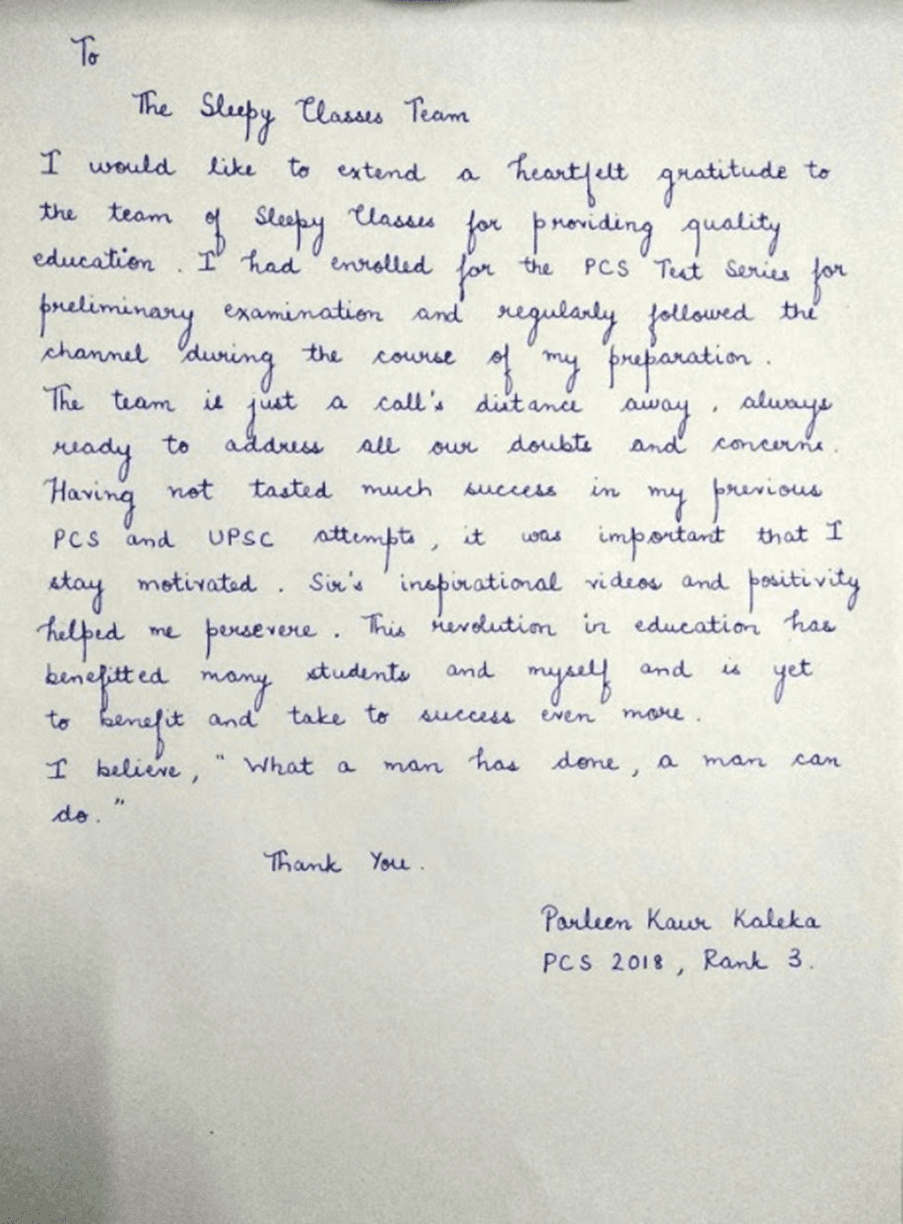 To
The Sleepy Classes Team
I would like to extend a heartfelt gratitude to
the team of Sleepy Classes for providing quality
education. I had enrolled for the PCS Test Series for
preliminary examination and regularly followed the
channel during the course of my preparation.
The team is just a call's distance away, always
ready to address all our doubts and concerns.
Having not tasted much success in my previous
PCS and UPSC attempts, it was important that I
stay motivated. Sir's inspirational videos and positivity
helped me persevere. This revolution in education has
benefitted many students and myself and is yet
to benefit and take to success even more.
I believe, "What a man has done, a man can
do."
Thank You.
Parleen Kaur Kaleka
PCS 2018, Rank 3.